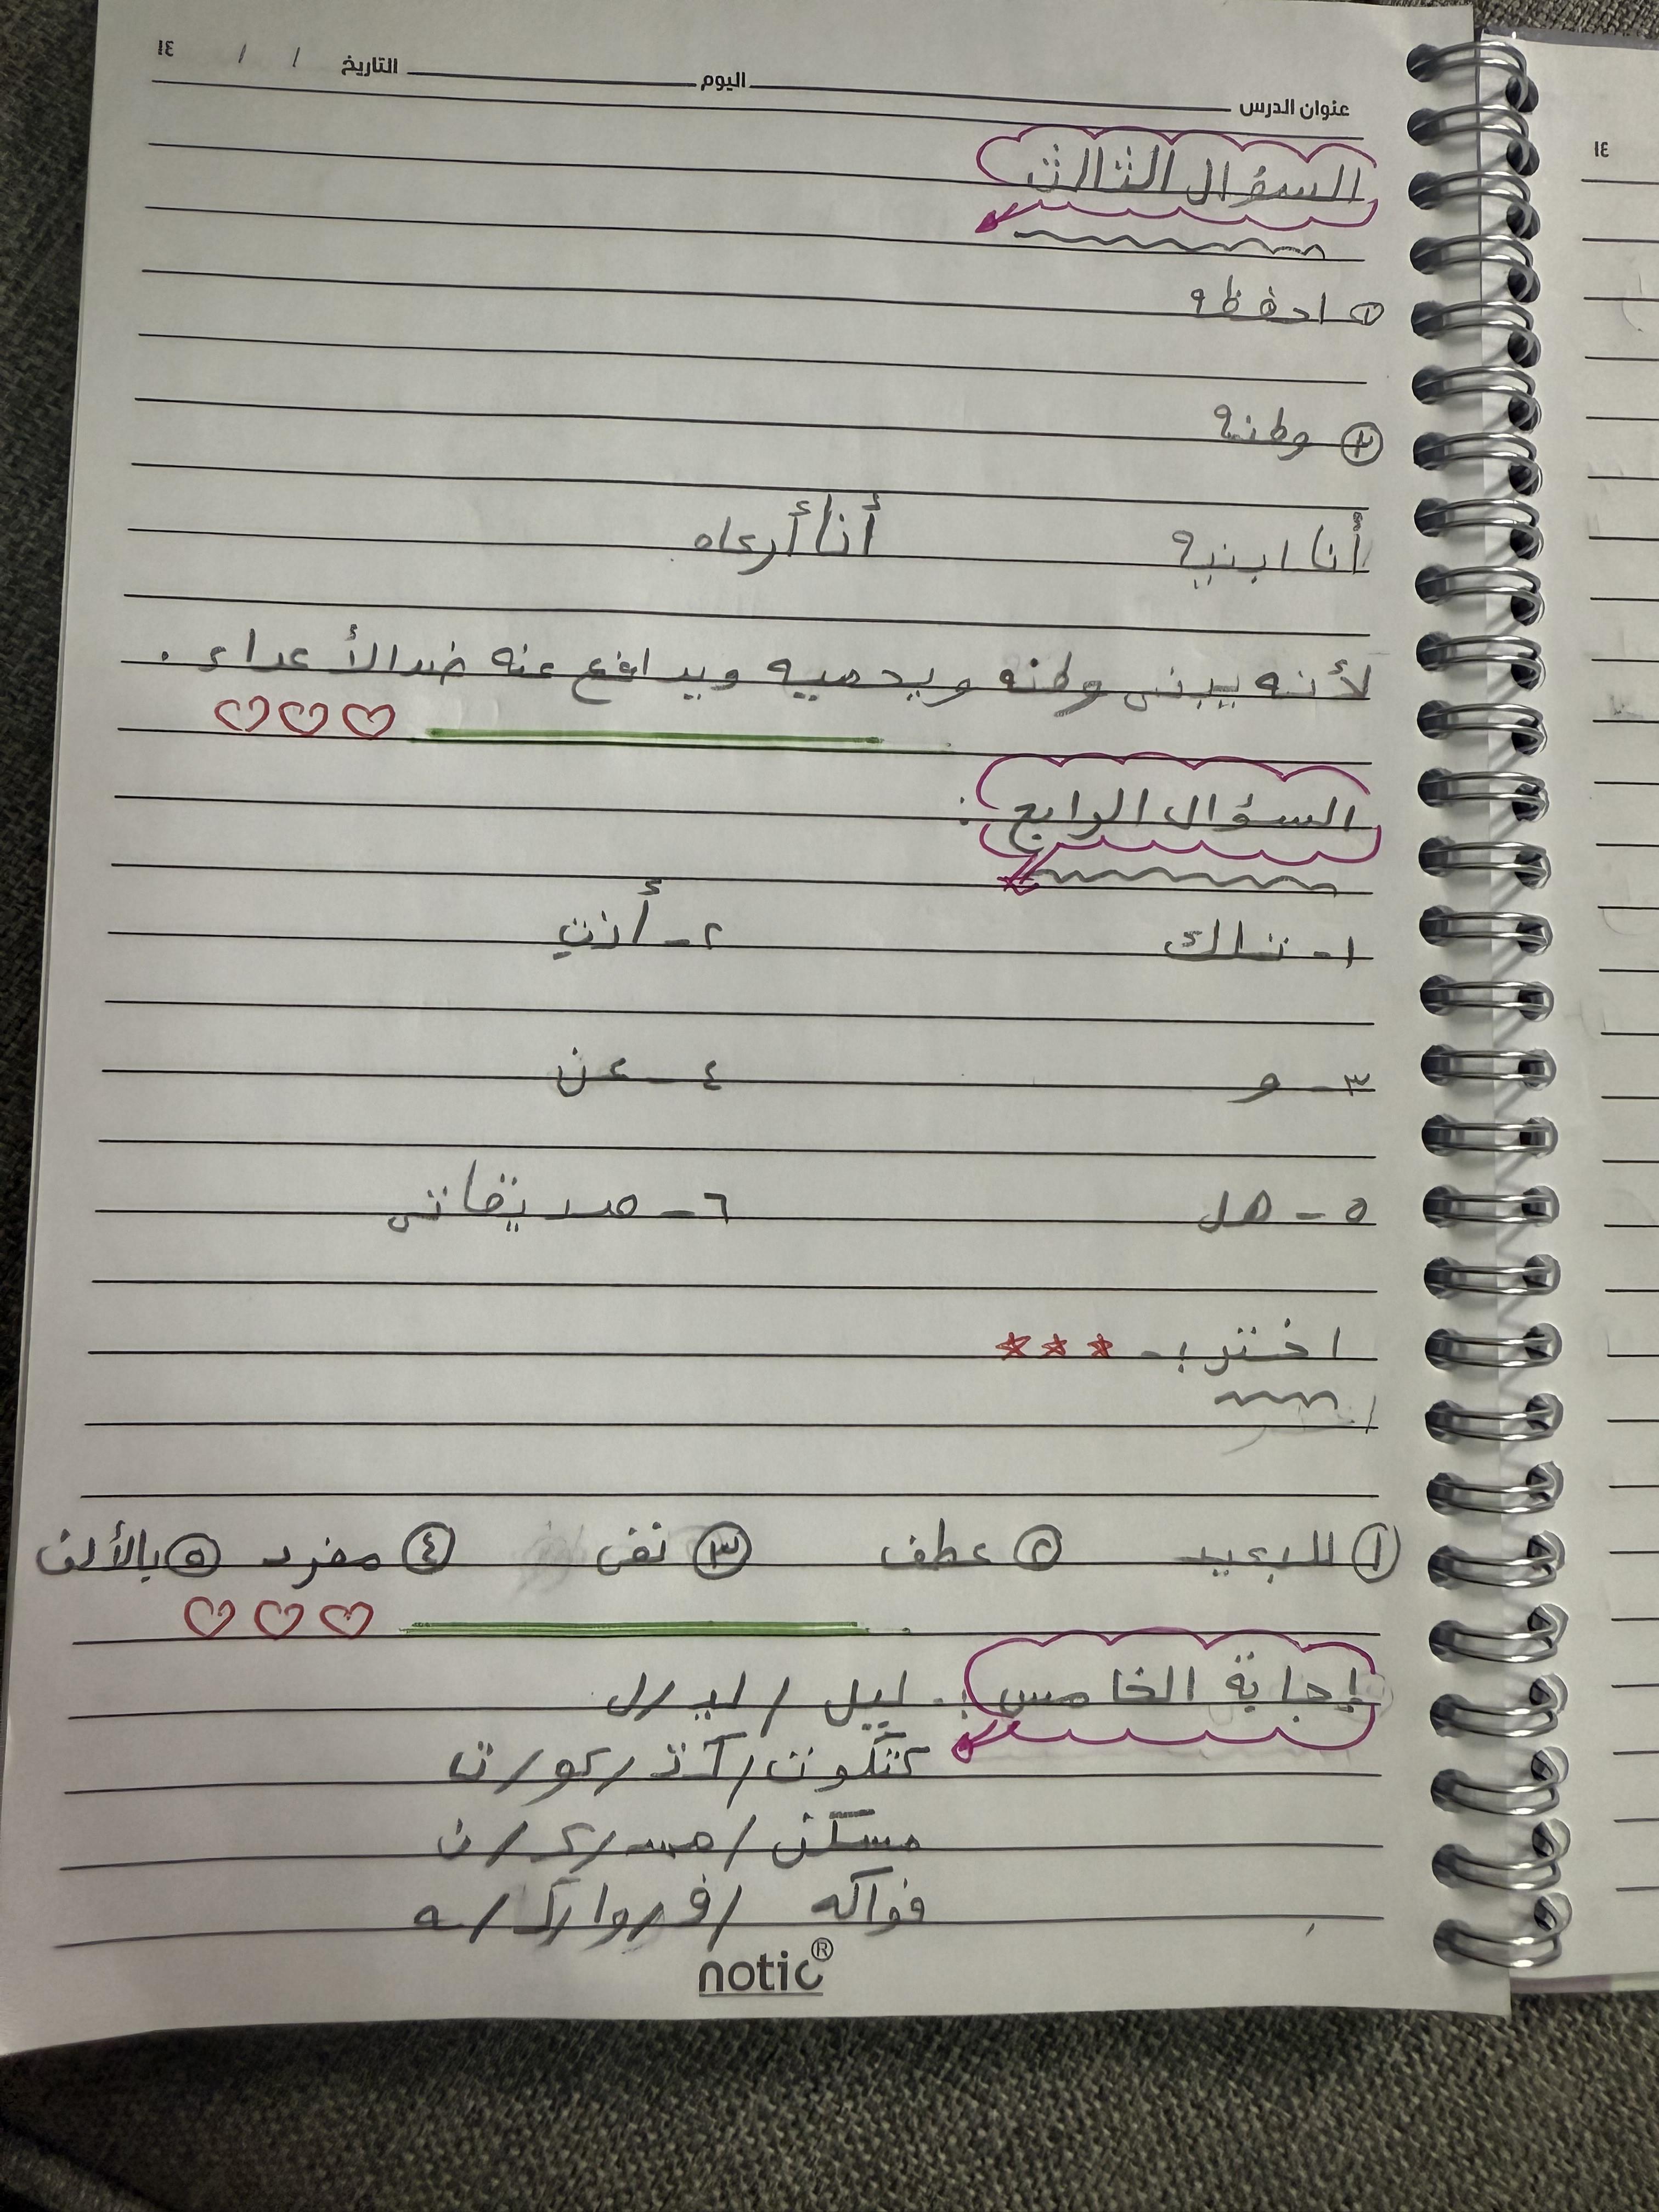 عنوان الدرس اليوم التاريخ / / ١٤
السؤال الثالث
② احفظه
③ وطنه
أنا ابنيه أنا أرعاه
لأنه يبنى وطنه ويحميه ويدافع عنه ضد الأعداء .
السؤال الرابع :
١- تلك ٢- أنتِ
٣- و ٤- عن
٥- هل ٦- صديقاتى
اختر :-
① للبعيد ② عطف ③ نفى ④ مفرد ⑤ بالألف
إجابة الخامس :. ليل / ليـ / ل
مسكن / مسـ / كـ / ن
فواكه / فـ / وا / كـ / ـه
notic®
١٤